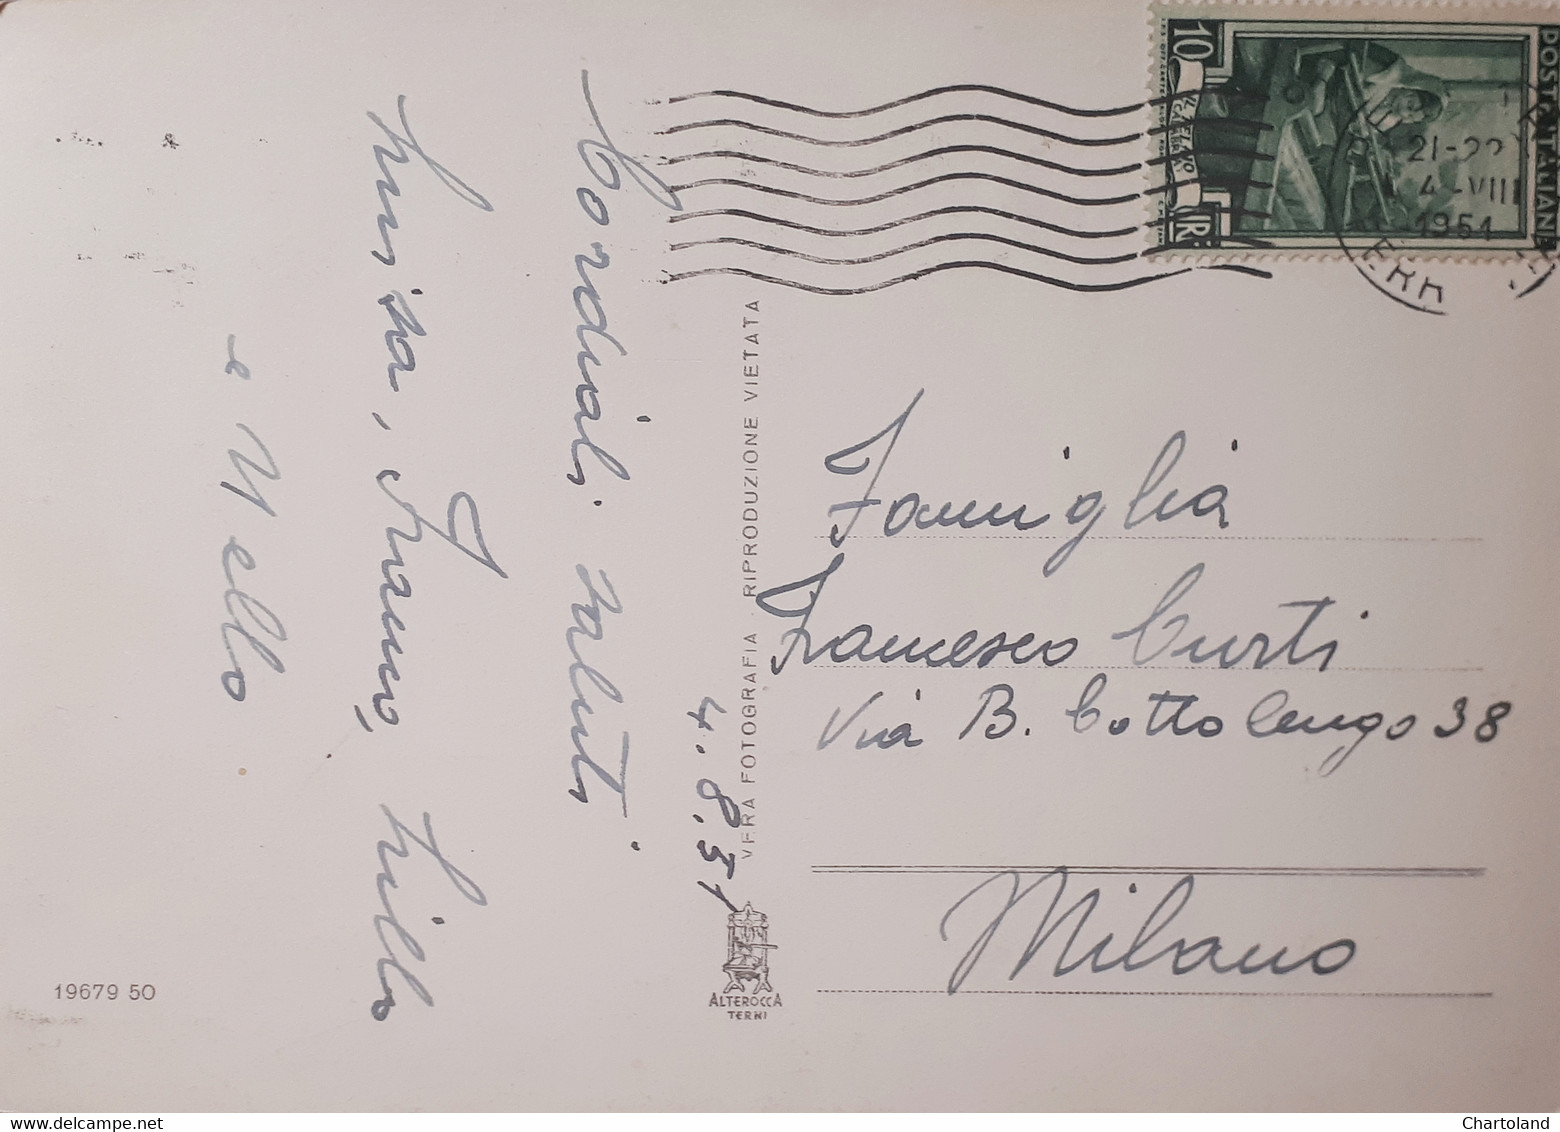 Cordiali saluti
Luisa, Franco, Lillo
e Nello
4.8.51
VERA FOTOGRAFIA - RIPRODUZIONE VIETATA
ALTEROCCA
TERNI
19679 50
10
LIRE
POSTE ITALIANE
21-22
4-VIII
1951
Famiglia
Francesco Curti
Via B. Cottolengo 38
Milano
delcampe.net
Chartoland